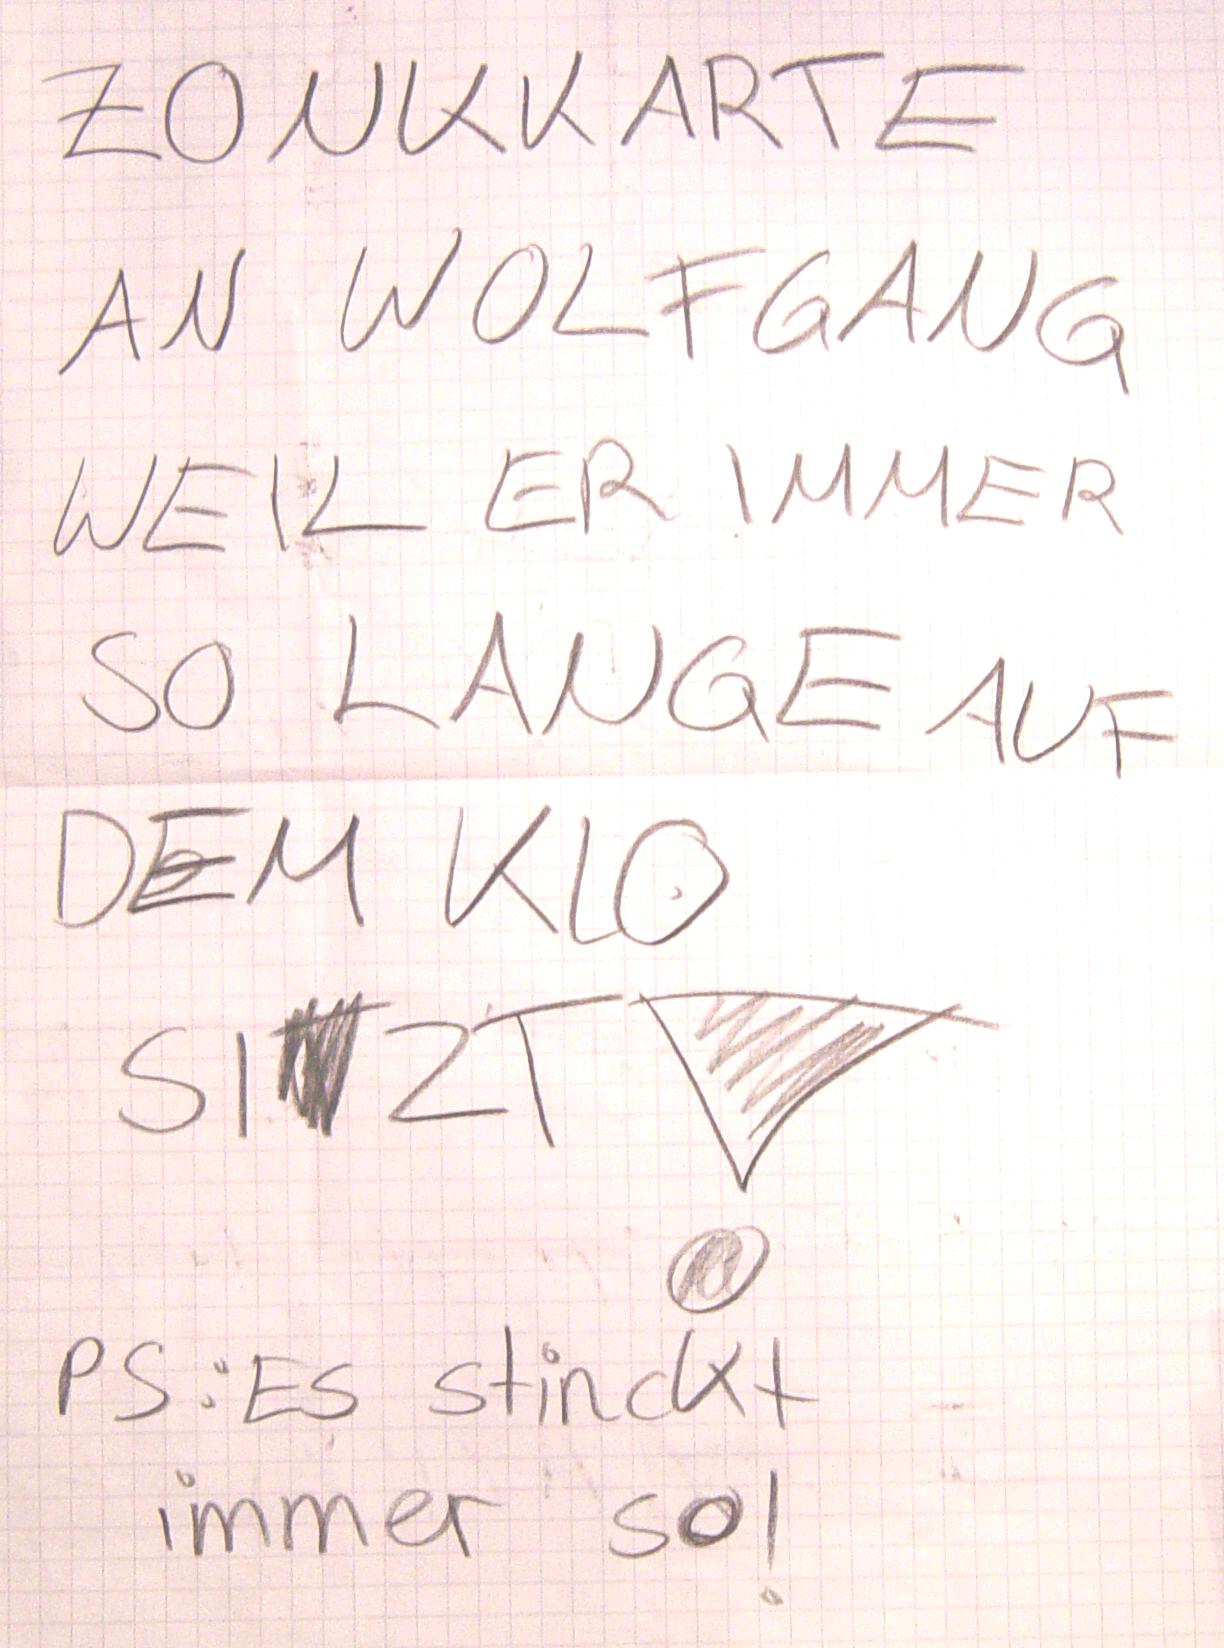 ZONKKARTE
AN WOLFGANG
WEIL ER IMMER
SO LANGE AUF
DEM KLO
SITZT!
PS.: ES stinckt
immer so!